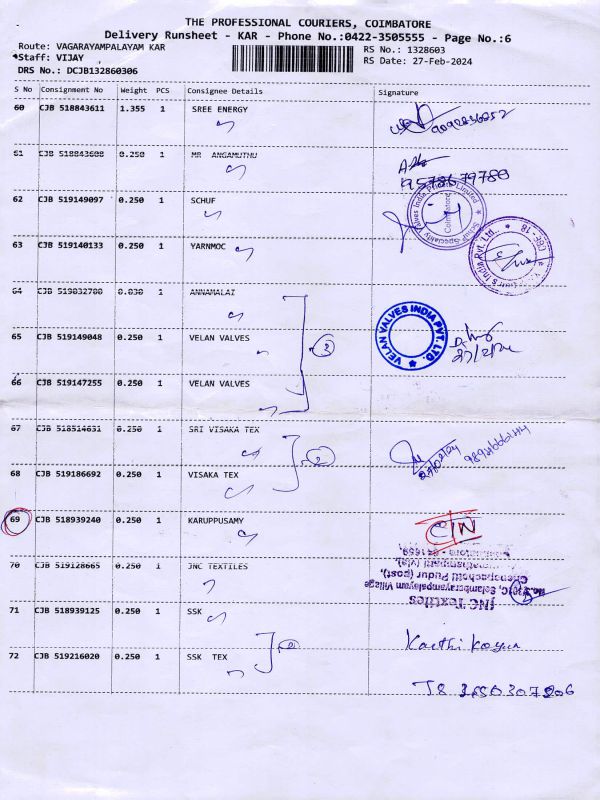 THE PROFESSIONAL COURIERS, COIMBATORE
Delivery Runsheet - KAR - Phone No.:0422-3505555 - Page No.:6
Route: VAGARAYAMPALAYAM KAR RS No.: 1328603
Staff: VIJAY RS Date: 27-Feb-2024
DRS No.: DCJB132860306
S No Consignment No Weight PCS Consignee Details Signature
60 CJB 518843611 1.355 1 SREE ENERGY
61 CJB 518843608 0.250 1 MR ANGAMUTHU
62 CJB 519149097 0.250 1 SCHUF
63 CJB 519140133 0.250 1 YARNMOC
64 CJB 519032700 0.030 1 ANNAMALAI
65 CJB 519149048 0.250 1 VELAN VALVES
VELAN VALVES INDIA PVT. LTD.
27/2/24
66 CJB 519147255 0.250 1 VELAN VALVES
67 CJB 518514631 0.250 1 SRI VISAKA TEX
68 CJB 519186692 0.250 1 VISAKA TEX
69 CJB 518939240 0.250 1 KARUPPUSAMY
C/N
70 CJB 519128665 0.250 1 JNC TEXTILES
JNC Textiles
71 CJB 518939125 0.250 1 SSK
72 CJB 519216020 0.250 1 SSK TEX